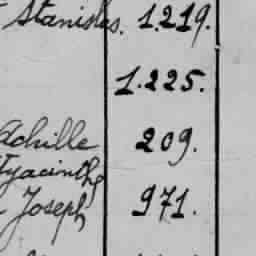 Stanislas. 1.219.
1.225.
Achille 209.
Hyacinthe
Joseph 971.